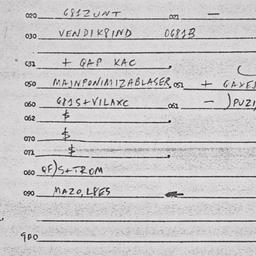 020 G81ZUNT 021 —
030 VENDIKPIND 0G81B
031 + GAP KAC
050 MAJNPONIMIZABLASER 051 + GAYE
060 G81S+VILAXC 061 — )PUZI
062 $
070 $
071 $
080 QF)S+TROM
090 MAZO,LPES
900